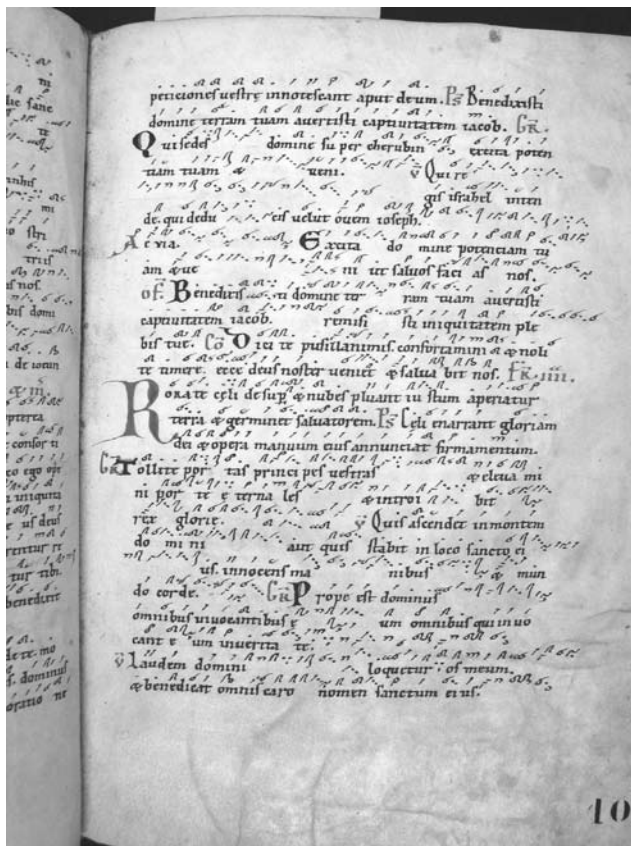 peticiones vestrę innotescant aput deum. Ps Benedixisti
domine terram tuam avertisti captivitatem iacob. GR.
Qui sedes domine su per cherubin excita poten
tiam tuam & veni. V Qui re
gis israhel inten
de. qui dedu cis velut ovem ioseph.
Ae via. Excita do mine potenciam tu
am & ve ni ut salvos faci as nos.
OF. Benedixis ti domine ter ram tuam avertisti
captivitatem iacob. remisi sti iniquitatem ple
bis tue. CO Dici te pusillanimis. confortamini & noli
te timere. ecce deus noster veniet & salva bit nos. FR. IIII.
Rorate cęli desup & nubes pluant iu stum aperiatur
terra & germinet salvatorem. Ps Cęli enarrant gloriam
dei & opera manuum eius annunciat firmamentum.
GR Tollite por tas princi pes vestras & eleva mi
ni por te e terna les & introi bit
rex glorię. V Quis ascendet in montem
do mi ni aut quis stabit in loco sancto ei
us. innocens ma nibus & mun
do corde. GR Prope est dominus
omnibus invocantibus e um omnibus qui invo
cant e um in verita te.
V Laudem domini loquetur os meum.
& benedicat omnis caro nomen sanctum ei us.
10